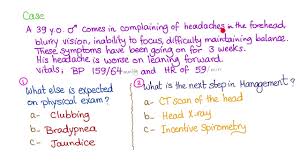 Case
A 39 y.o. ♂ comes in complaining of headaches in the forehead,
blurry vision, inability to focus, difficulty maintaining balance.
These symptoms have been going on for 3 weeks.
His headache is worse on leaning forward.
vitals; BP 159/64 and HR of 59
① What else is expected
on physical exam?
a- Clubbing
b- Bradypnea
c- Jaundice
② What is the next step in Management?
a- CT scan of the head
b- Head X-ray
c- Incentive Spirometry